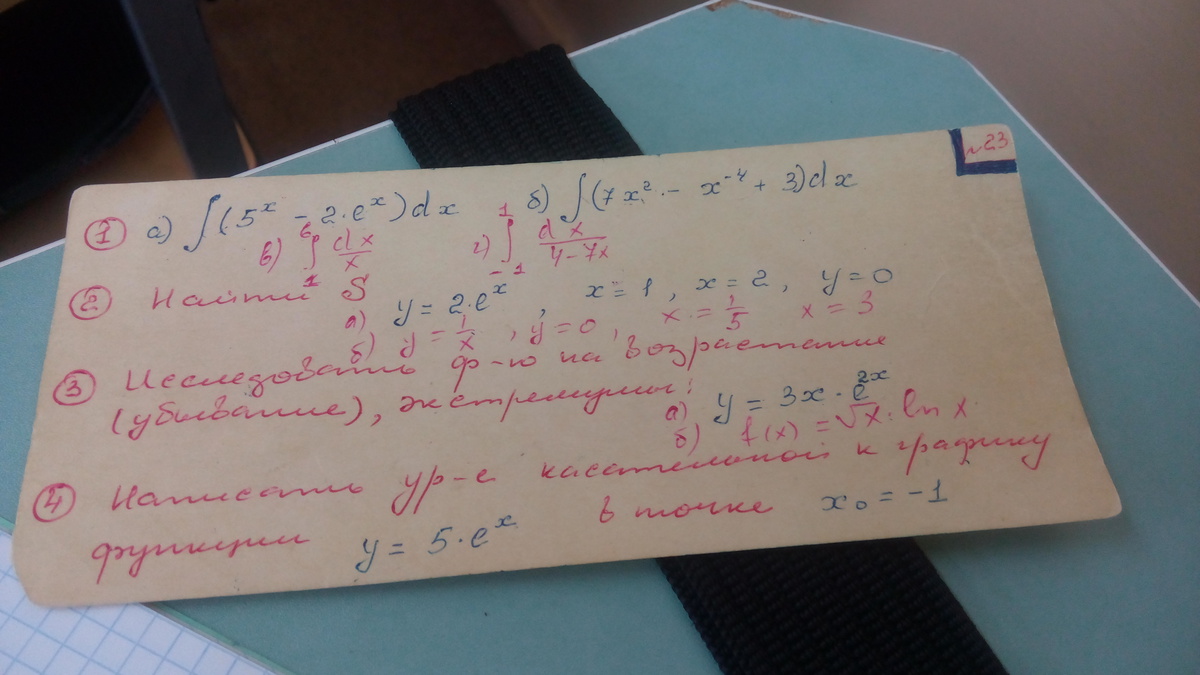 №23
① а) ∫(5ˣ - 2·eˣ)dx б) ∫(7x² - x⁻⁴ + 3)dx
в) ∫₁⁶ dx/x г) ∫₋₁¹ dx/(4-7x)
② Найти S
а) y = 2·eˣ, x = 1, x = 2, y = 0
б) y = 1/x, y = 0, x = 1/5 x = 3
③ Исследовать ф-ю на возрастание
(убывание), экстремумы:
а) y = 3x·e²ˣ
б) f(x) = √x·ln x
④ Написать ур-е касательной к графику
функции y = 5·eˣ в точке x₀ = -1